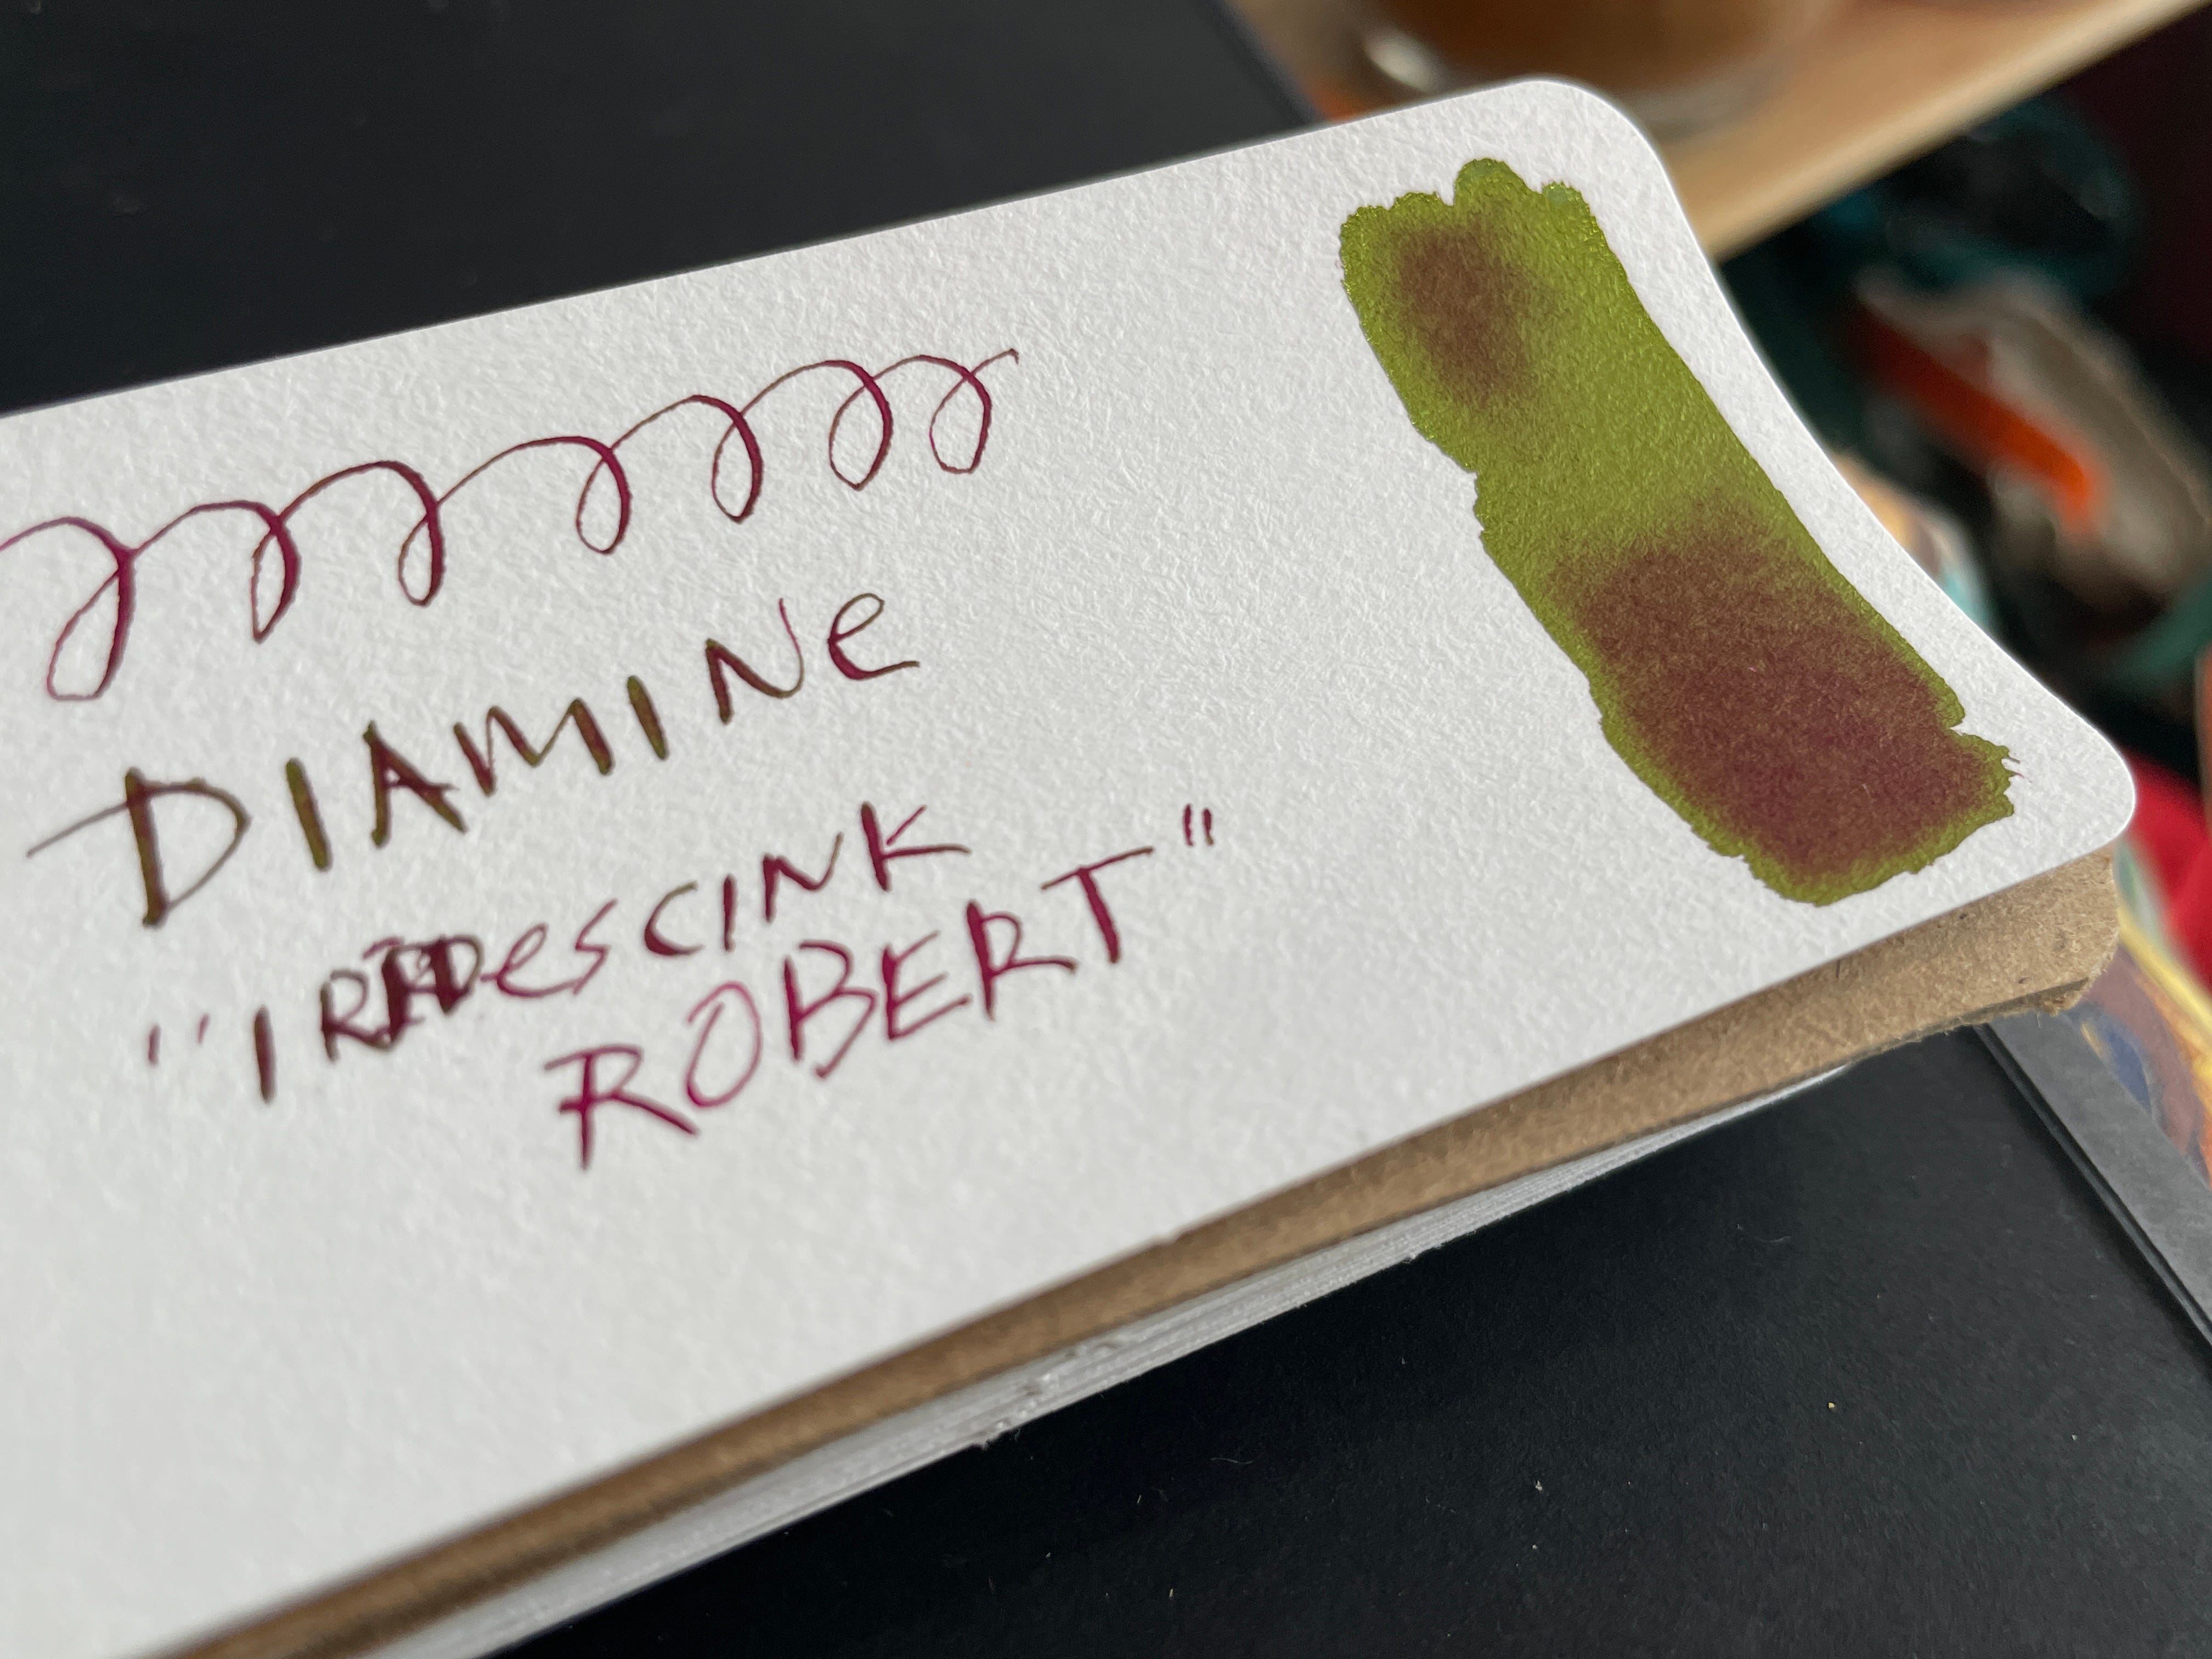 DIAMINe
"IRIDesCINK
ROBERT"